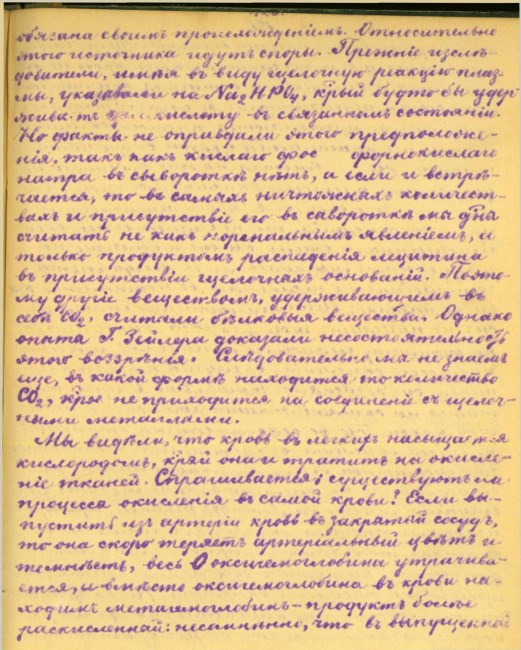 обязана своимъ происхожденіемъ. Относительно
этого источника идутъ споры. Прежніе изслѣ-
дователи, имѣя въ виду щелочную реакцію плаз-
мы, указывали на Na2HPO4, крый будто бы удер
живаетъ кислоту въ связанномъ состояніи.
Но факты не оправдали этого предположе-
нія, такъ какъ кислаго фос форнокислаго
натра въ сывороткѣ нѣтъ, а если и встрѣ-
чается, то въ самыхъ ничтожныхъ количест-
вахъ и присутствіе его въ сывороткѣ мы дна
считать не какъ нормальнымъ явленіемъ, а
только продуктомъ распаденія лецитина
въ присутствіи щелочныхъ основаній. Поэто-
му другіе веществомъ, удерживающимъ въ
себѣ CO2, считали бѣлковыя вещества. Однако
опыты Г. Зейлера доказали несостоятельность
этого воззрѣнія. Слѣдовательно мы не знаемъ
еще, въ какой формѣ находится то количество
CO2, крое не приходится на соединенія съ щелоч-
ными металлами.
Мы видѣли, что кровь въ легкихъ насыщается
кислородомъ, крый она и тратитъ на окисле-
ніе тканей. Спрашивается: существуютъ ли
процессы окисленія въ самой крови? Если вы-
пустить изъ артеріи кровь въ закрытый сосудъ,
то она скоро теряетъ артеріальный цвѣтъ и
темнѣетъ, весь О оксигемоглобина утрачива-
ется, и вмѣсто оксигемоглобина въ крови на-
ходимъ метагемоглобинъ - продуктъ болѣе
раскисленный: несомнѣнно, что въ выпущенной